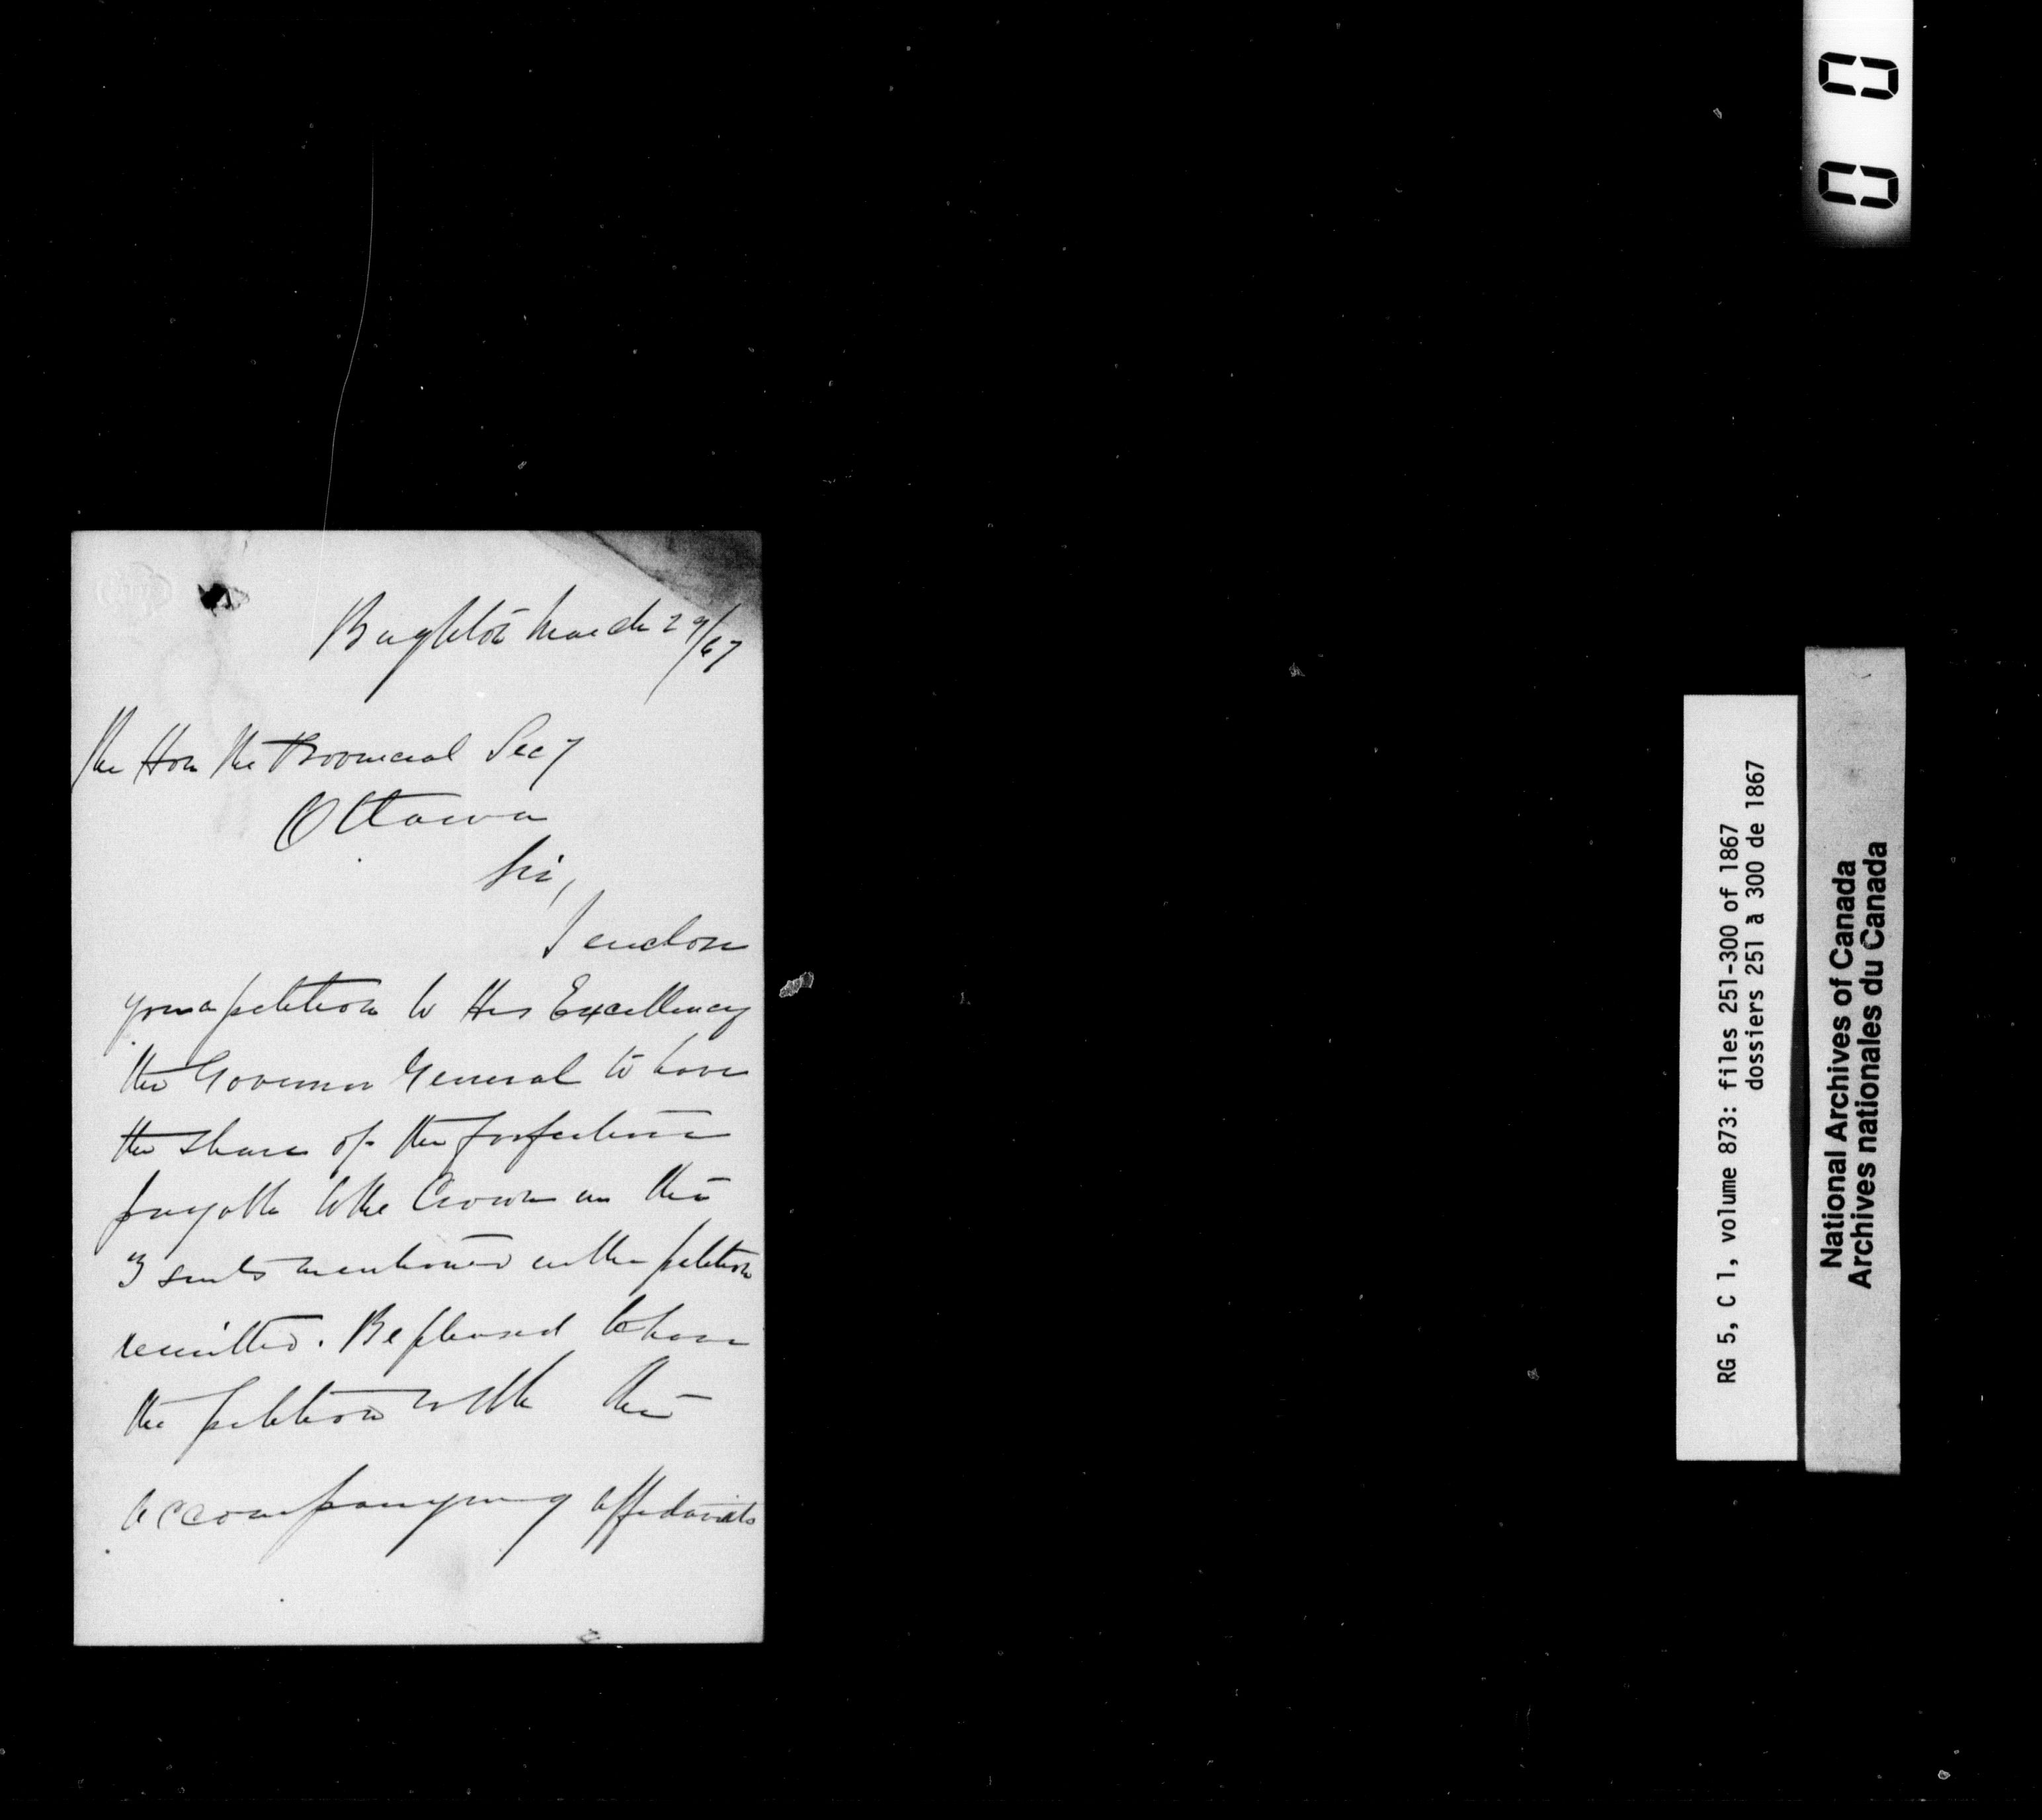 Brighton March 29/67
The Hon the Provincial Secy
Ottawa
Sir,
I enclose
you a petition to His Excellency
the Governor General to have
the share of the forfeiture
payable to the Crown in the
3 suits mentioned in the petition
remitted. Be pleased to have
the petition with the
accompanying affidavits
RG 5, C 1, volume 873: files 251-300 of 1867
dossiers 251 à 300 de 1867
National Archives of Canada
Archives nationales du Canada
00